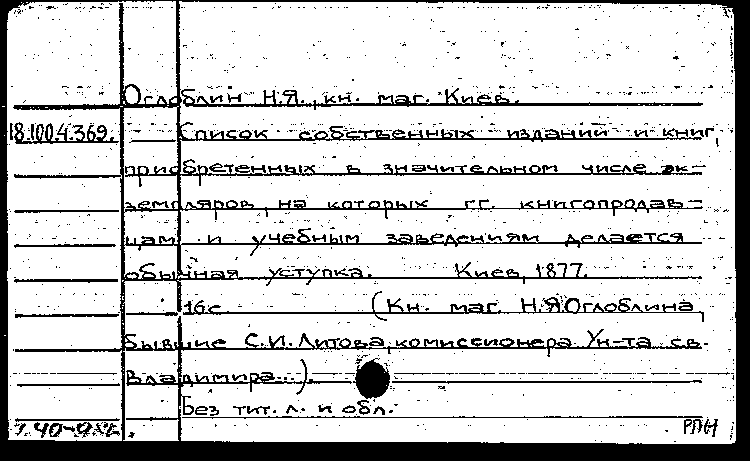 Оглоблин Н.Я., кн. маг. Киев.
18.100.4.369. Список собственных изданий и книг,
приобретенных в значительном числе эк-
земпляров, на которых г.г. книгопродав-
цам и учебным заведениям делается
обычная уступка. Киев, 1877.
16с. (Кн. маг. Н.Я.Оглоблина,
бывшие С.И.Литова, комиссионера Ун-та св.
Владимира...).
Без тит. л. и обл.